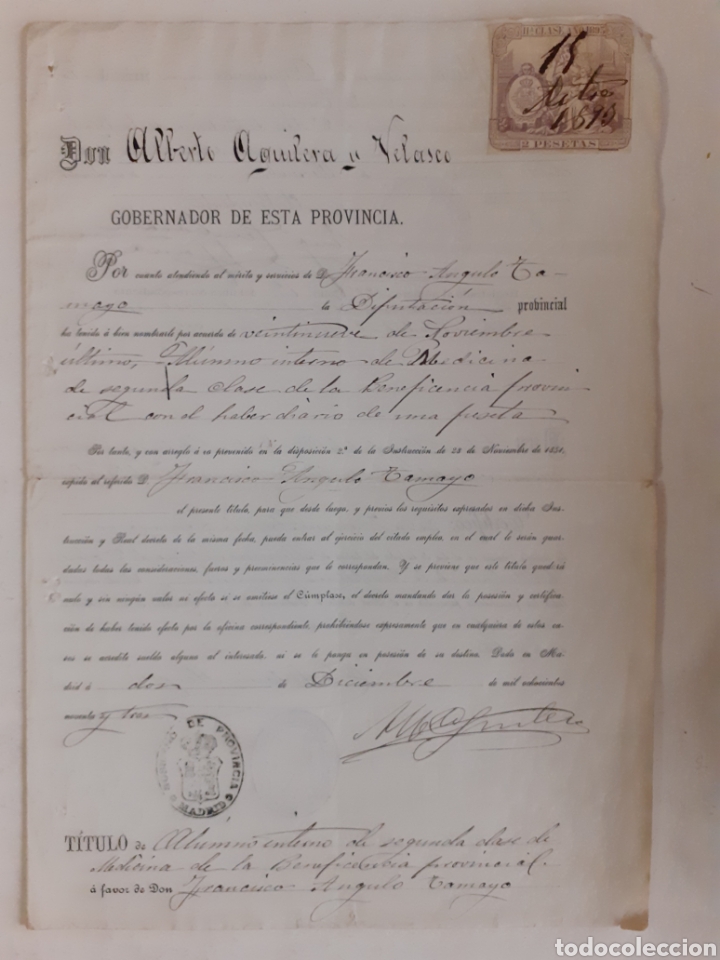 11ª CLASE AÑO 189
15
1893
2 PESETAS
Don Alberto Aguilera y Velasco
GOBERNADOR DE ESTA PROVINCIA.
Por cuanto atendiendo al mérito y servicios de D. Francisco Angulo Ta-
mayo la Diputación provincial
ha tenido á bien nombrarle por acuerdo de veintinueve de Noviembre
último, Alumno interno de Medicina
de segunda clase de la Beneficencia provin-
cial con el haber diario de una peseta
Por tanto, y con arreglo á lo prevenido en la disposición 2ª de la Instrucción de 28 de Noviembre de 1851,
expido al referido D. Francisco Angulo Tamayo
el presente título, para que desde luego, y previos los requisitos expresados en dicha Ins-
trucción y Real decreto de la misma fecha, pueda entrar al ejercicio del citado empleo, en el cual le serán guar-
dadas todas las consideraciones, fueros y preeminencias que le correspondan. Y se previene que este título quedará
nulo y sin ningún valor ni efecto si se omitiese el Cúmplase, el decreto mandando dar la posesión y certifica-
ción de haber tenido efecto por la oficina correspondiente, prohibiéndose expresamente que en cualquiera de estos ca-
sos se acredite sueldo alguno al interesado, ni se le ponga en posesión de su destino. Dado en Ma-
drid á dos de Diciembre de mil ochocientos
noventa y tres
DE PROVINCIA
MADRID
TÍTULO de Alumno interno de segunda clase de
Medicina de la Beneficencia provincial
á favor de Don Francisco Angulo Tamayo
todocoleccion.net